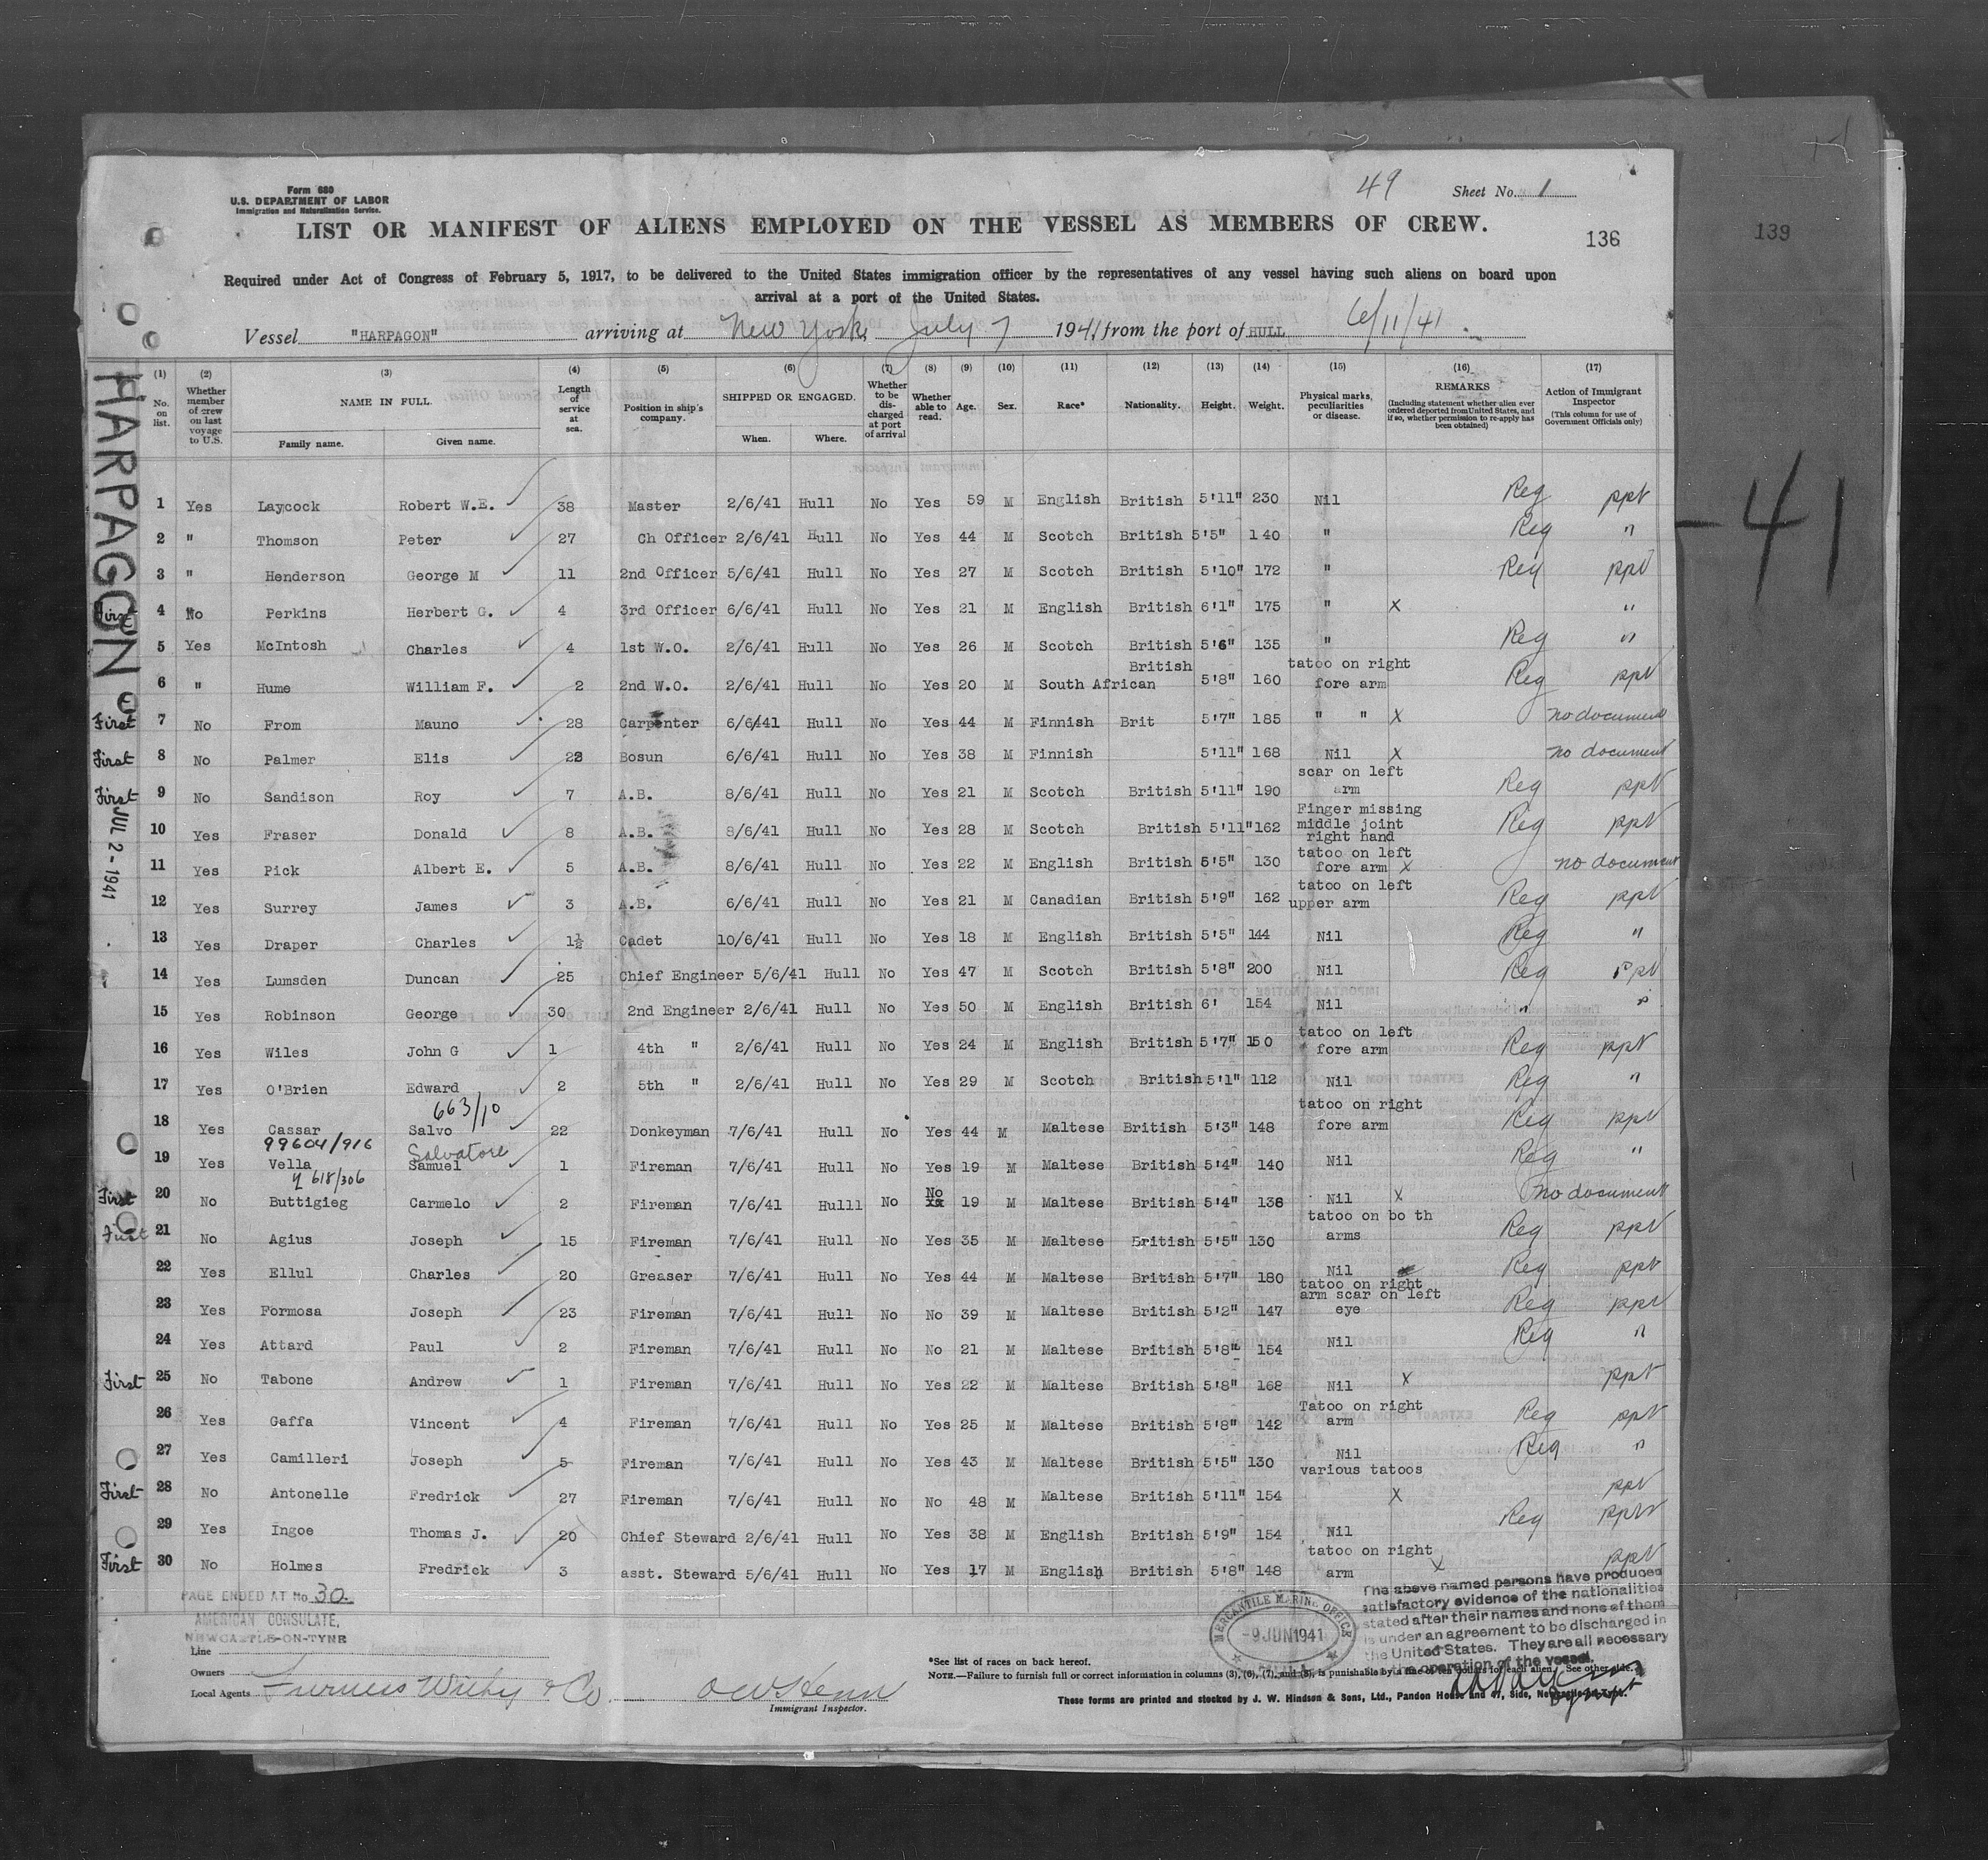 Form 680
U.S. DEPARTMENT OF LABOR
Immigration and Naturalization Service.
49
Sheet No. 1
LIST OR MANIFEST OF ALIENS EMPLOYED ON THE VESSEL AS MEMBERS OF CREW.
136
139
Required under Act of Congress of February 5, 1917, to be delivered to the United States immigration officer by the representatives of any vessel having such aliens on board upon
arrival at a port of the United States.
Vessel "HARPAGON" arriving at New York July 7 1941, from the port of HULL 6/11/41
HARPAGON
JUL 2 - 1941
-41
(1) No. on list. (2) Whether member of crew on last voyage to U.S. (3) NAME IN FULL. Family name. Given name. (4) Length of service at sea. (5) Position in ship's company. (6) SHIPPED OR ENGAGED. When. Where. (7) Whether to be discharged at port of arrival (8) Whether able to read. (9) Age. (10) Sex. (11) Race* (12) Nationality. (13) Height. (14) Weight. (15) Physical marks, peculiarities or disease. (16) REMARKS (Including statement whether alien ever ordered deported from United States, and if so, whether permission to re-apply has been obtained) (17) Action of Immigrant Inspector (This column for use of Government Officials only)
1 Yes Laycock Robert W.E. 38 Master 2/6/41 Hull No Yes 59 M English British 5'11" 230 Nil Reg ppt
2 " Thomson Peter 27 Ch Officer 2/6/41 Hull No Yes 44 M Scotch British 5'5" 140 " Reg "
3 " Henderson George M 11 2nd Officer 5/6/41 Hull No Yes 27 M Scotch British 5'10" 172 " Reg ppt
First 4 No Perkins Herbert G. 4 3rd Officer 6/6/41 Hull No Yes 21 M English British 6'1" 175 " X "
5 Yes McIntosh Charles 4 1st W.O. 2/6/41 Hull No Yes 26 M Scotch British 5'6" 135 " Reg "
6 " Hume William F. 2 2nd W.O. 2/6/41 Hull No Yes 20 M South African British 5'8" 160 tatoo on right fore arm Reg ppt
First 7 No From Mauno 28 Carpenter 6/6/41 Hull No Yes 44 M Finnish Brit 5'7" 185 " " X no document
First 8 No Palmer Elis 22 Bosun 6/6/41 Hull No Yes 38 M Finnish 5'11" 168 Nil X no document
First 9 No Sandison Roy 7 A.B. 8/6/41 Hull No Yes 21 M Scotch British 5'11" 190 scar on left arm Reg ppt
10 Yes Fraser Donald 8 A.B. 8/6/41 Hull No Yes 28 M Scotch British 5'11" 162 Finger missing middle joint right hand Reg ppt
11 Yes Pick Albert E. 5 A.B. 8/6/41 Hull No Yes 22 M English British 5'5" 130 tatoo on left fore arm X no document
12 Yes Surrey James 3 A.B. 6/6/41 Hull No Yes 21 M Canadian British 5'9" 162 tatoo on left upper arm Reg ppt
13 Yes Draper Charles 1½ Cadet 10/6/41 Hull No Yes 18 M English British 5'5" 144 Nil Reg "
14 Yes Lumsden Duncan 25 Chief Engineer 5/6/41 Hull No Yes 47 M Scotch British 5'8" 200 Nil Reg ppt
15 Yes Robinson George 30 2nd Engineer 2/6/41 Hull No Yes 50 M English British 6' 154 Nil " "
16 Yes Wiles John G 1 4th " 2/6/41 Hull No Yes 24 M English British 5'7" 150 tatoo on left fore arm Reg ppt
17 Yes O'Brien Edward 2 5th " 2/6/41 Hull No Yes 29 M Scotch British 5'1" 112 Nil Reg "
663/10
18 Yes Cassar Salvo 22 Donkeyman 7/6/41 Hull No Yes 44 M Maltese British 5'3" 148 tatoo on right fore arm Reg ppt
99604/916 Salvatore
19 Yes Vella Samuel 1 Fireman 7/6/41 Hull No Yes 19 M Maltese British 5'4" 140 Nil Reg "
618/306
First 20 No Buttigieg Carmelo 2 Fireman 7/6/41 Hulll No No 19 M Maltese British 5'4" 138 Nil X no document
First 21 No Agius Joseph 15 Fireman 7/6/41 Hull No Yes 35 M Maltese British 5'5" 130 tatoo on bo th arms Reg ppt
22 Yes Ellul Charles 20 Greaser 7/6/41 Hull No Yes 44 M Maltese British 5'7" 180 Nil Reg ppt
23 Yes Formosa Joseph 23 Fireman 7/6/41 Hull No No 39 M Maltese British 5'2" 147 tatoo on right arm scar on left eye Reg ppt
24 Yes Attard Paul 2 Fireman 7/6/41 Hull No No 21 M Maltese British 5'8" 154 Nil Reg "
First 25 No Tabone Andrew 1 Fireman 7/6/41 Hull No Yes 22 M Maltese British 5'8" 168 Nil X ppt
26 Yes Gaffa Vincent 4 Fireman 7/6/41 Hull No Yes 25 M Maltese British 5'8" 142 Tatoo on right arm Reg ppt
27 Yes Camilleri Joseph 5 Fireman 7/6/41 Hull No Yes 43 M Maltese British 5'5" 130 Nil Reg "
First 28 No Antonelle Fredrick 27 Fireman 7/6/41 Hull No No 48 M Maltese British 5'11" 154 various tatoos X ppt
29 Yes Ingoe Thomas J. 20 Chief Steward 2/6/41 Hull No Yes 38 M English British 5'9" 154 Nil Reg ppt
First 30 No Holmes Fredrick 3 asst. Steward 5/6/41 Hull No Yes 17 M English British 5'8" 148 tatoo on right arm X ppt
PAGE ENDED AT No 30
AMERICAN CONSULATE,
NEWCASTLE-ON-TYNE
The above named persons have produced
satisfactory evidence of the nationalities
stated after their names and none of them
is under an agreement to be discharged in
the United States. They are all necessary
the operation of the vessel.
MERCANTILE MARINE OFFICE
-9 JUN 1941
Line
Owners
Local Agents Furness Withy & Co.
Immigrant Inspector.
*See list of races on back hereof.
NOTE.—Failure to furnish full or correct information in columns (3), (6), (7), and (8), is punishable by a fine of ten dollars for each alien. See other side.
These forms are printed and stocked by J. W. Hindson & Sons, Ltd., Pandon House and 47, Side, Newcastle-on-Tyne.